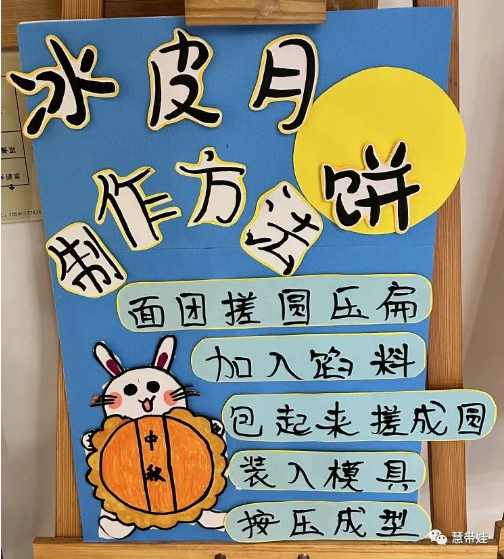 冰皮月
饼
制作方法
面团搓圆压扁
加入馅料
包起来搓成圆
装入模具
按压成型
中秋
慧带娃